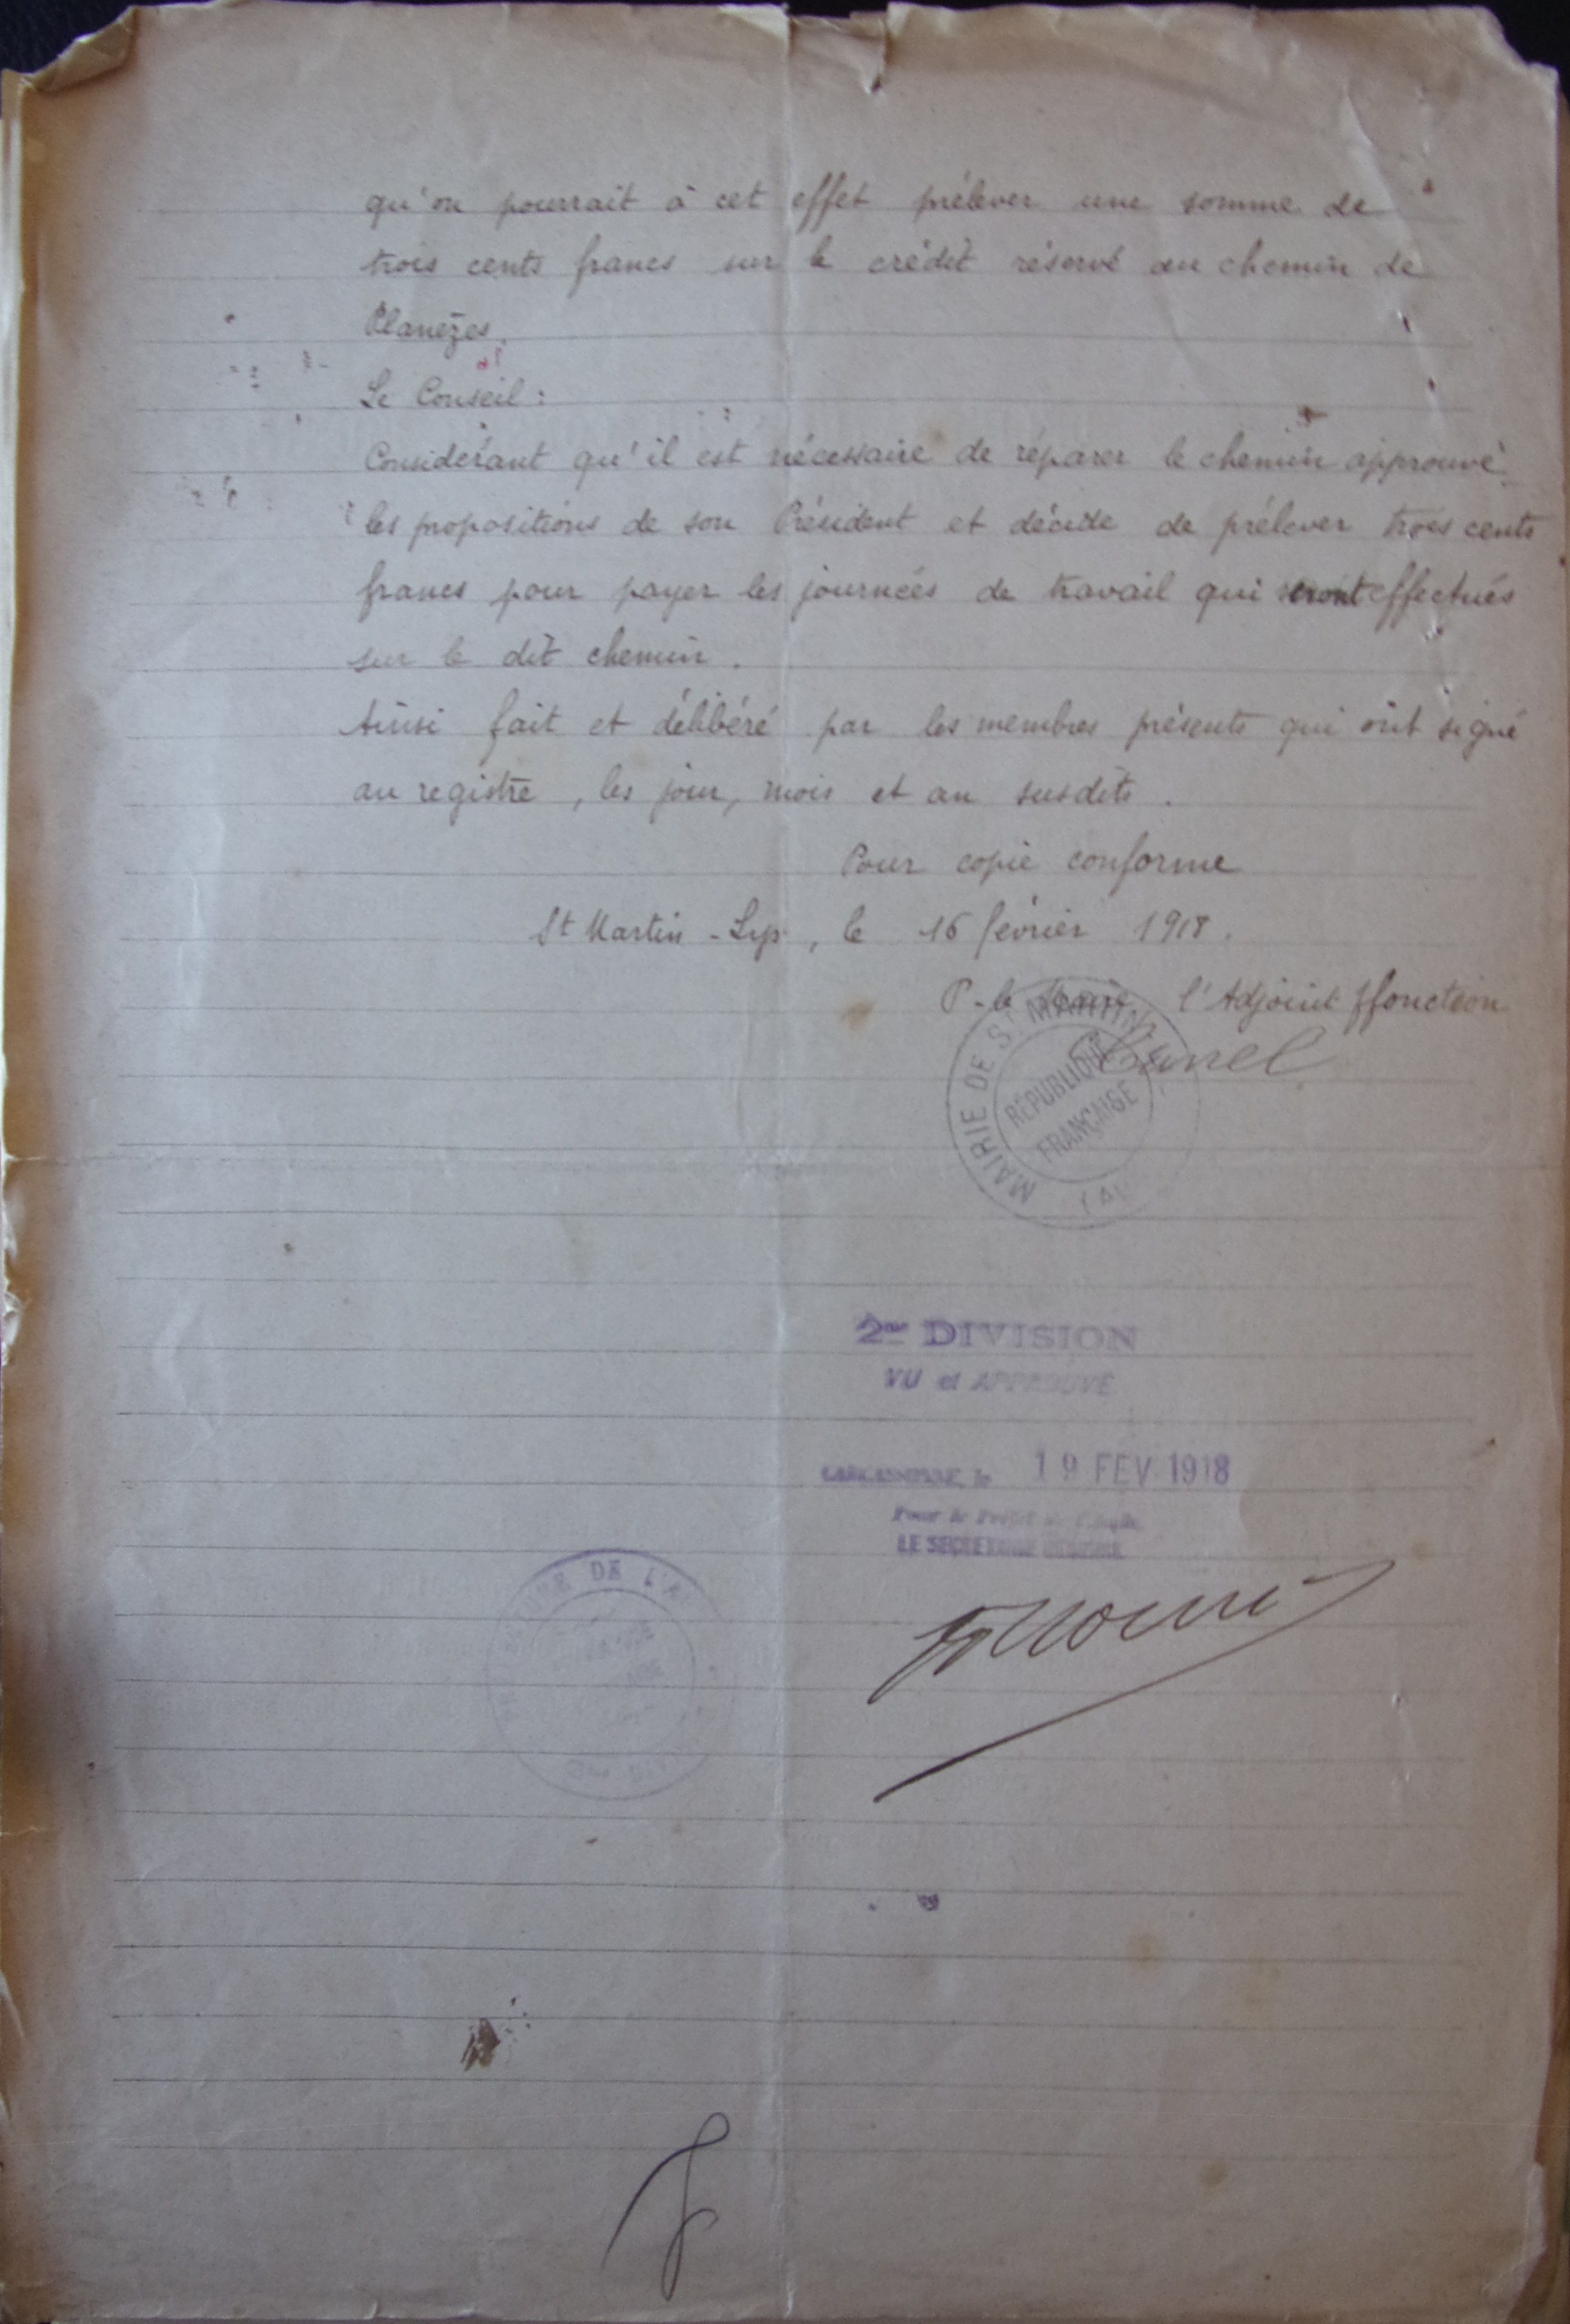 qu'on pourrait à cet effet prélever une somme de
trois cents francs sur le crédit réservé au chemin de
Planezes.
Le Conseil :
Considérant qu'il est nécessaire de réparer le chemin approuve
les propositions de son Président et décide de prélever trois cents
francs pour payer les journées de travail qui seront effectués
sur le dit chemin.
Ainsi fait et délibéré par les membres présents qui ont signé
au registre, les jour, mois et an susdits.
Pour copie conforme
St Martin-Lys, le 16 février 1918.
P. le Maire l'Adjoint ffonction
MAIRIE DE St MARTIN
RÉPUBLIQUE
FRANÇAISE
2me DIVISION
VU et APPROUVÉ
CARCASSONNE, le 19 FEV 1918
Pour le Préfet de l'Aude
LE SECRÉTAIRE GÉNÉRAL
DE L'A